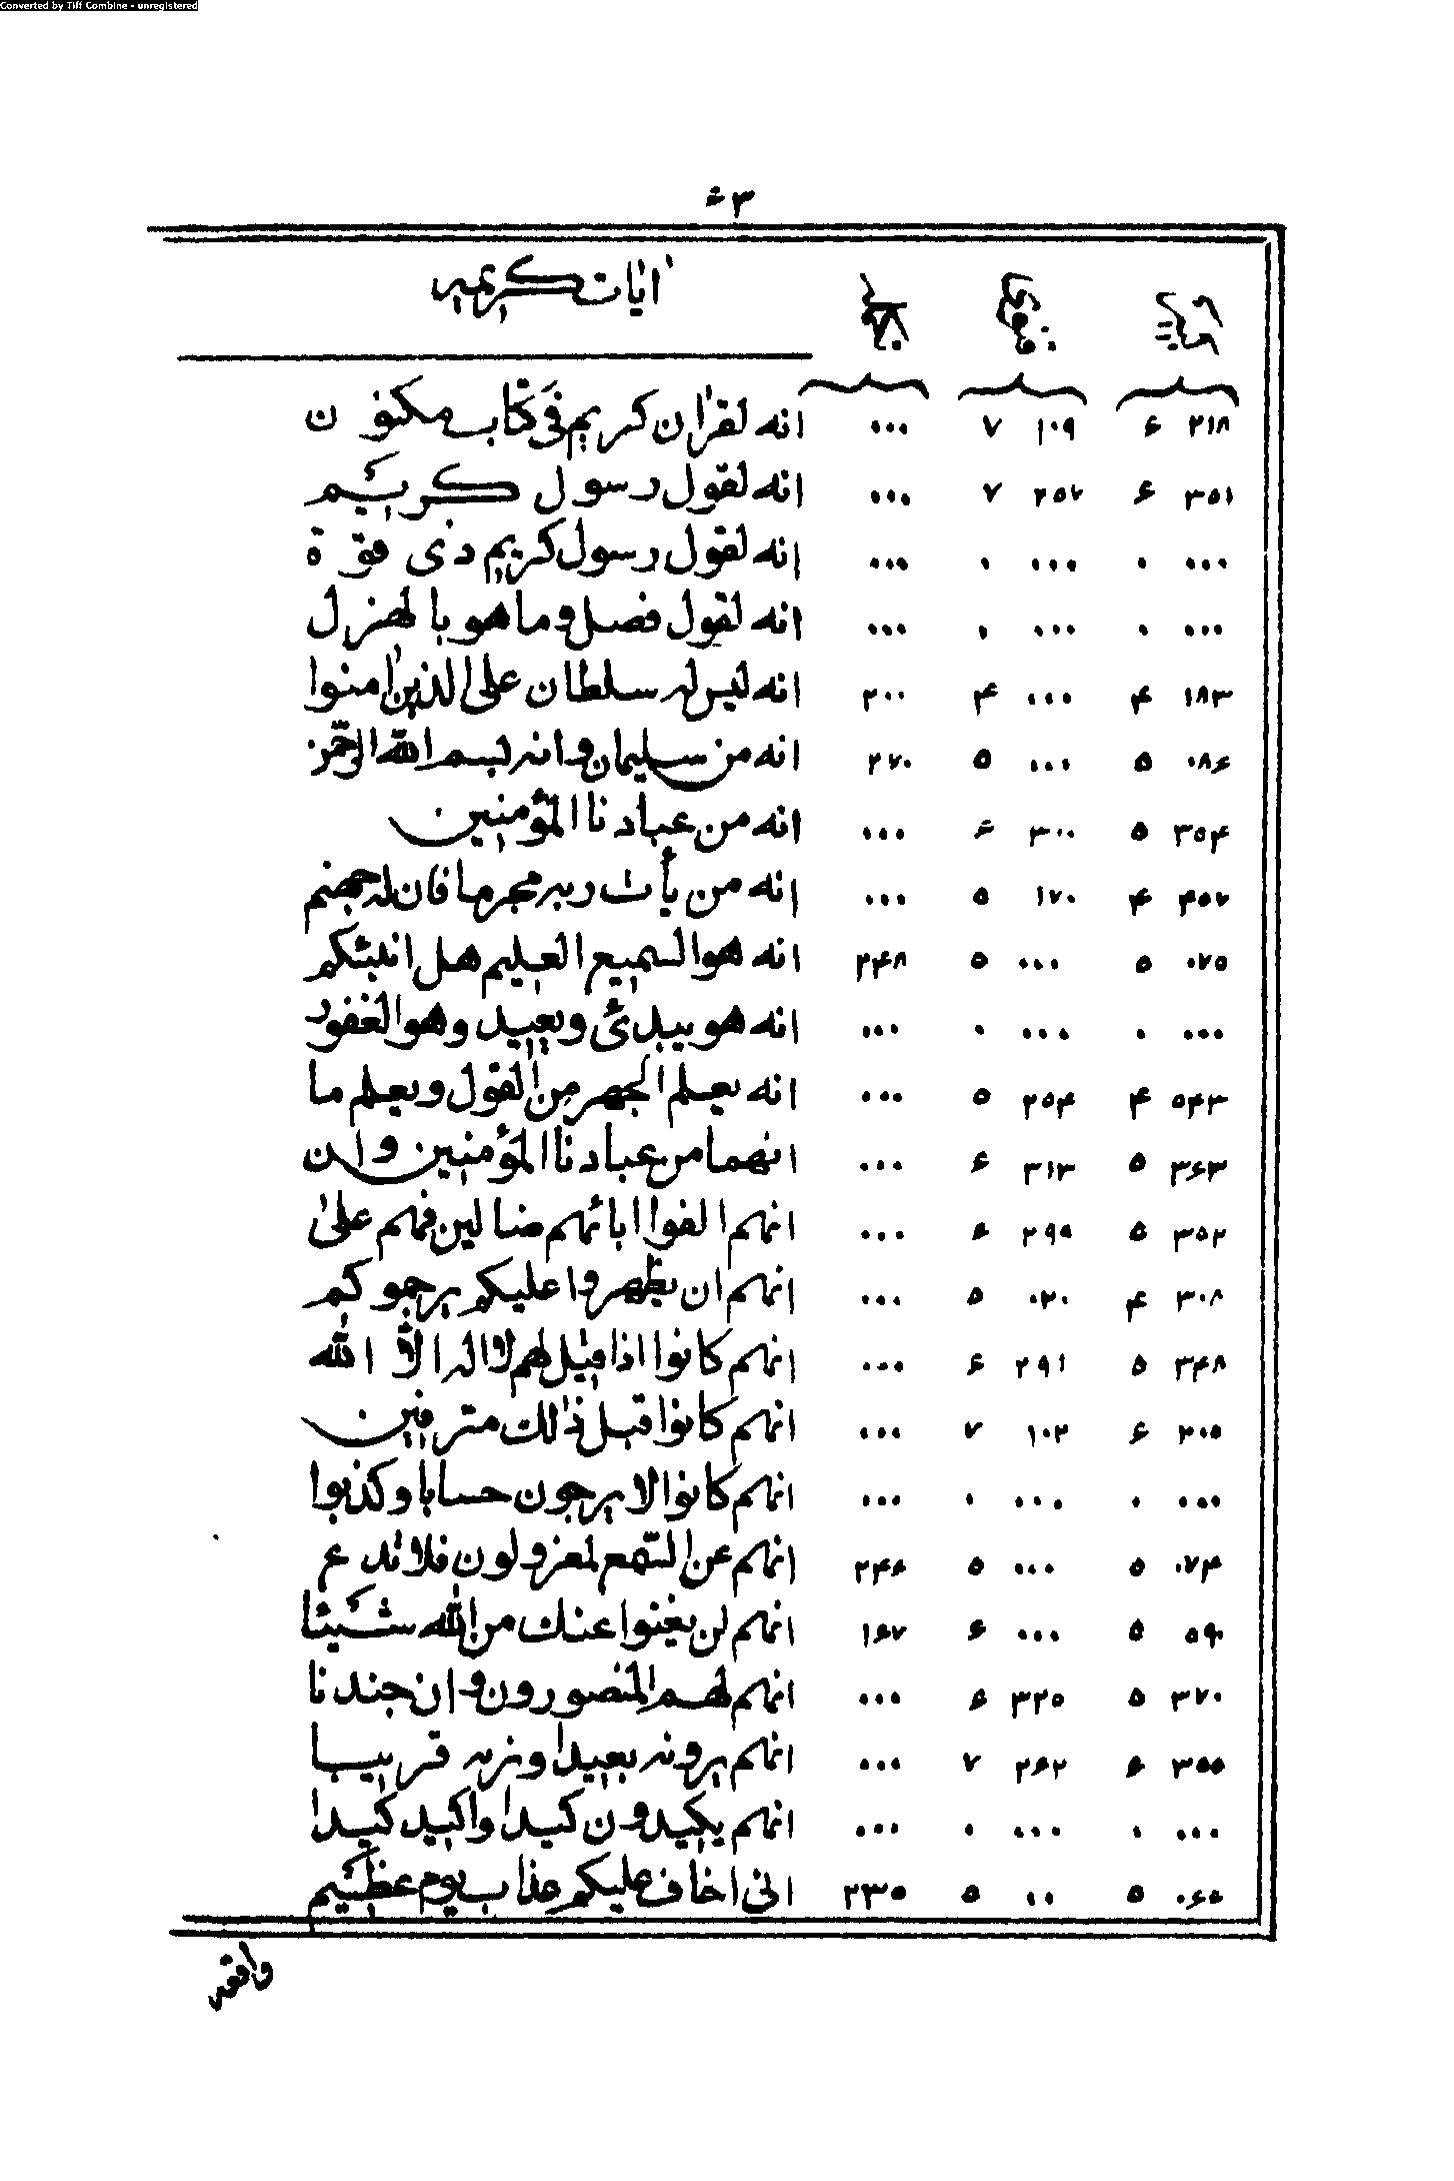 Converted by Tiff Combine - unregistered
ايات كريمه
۲۱۸ ۶ ۱۰۹ ۷ ۰۰۰ انه لقران كريم في كتاب مكنون
۳۵۱ ۶ ۲۵۷ ۷ ۰۰۰ انه لقول رسول كريم
۰۰۰ ۰ ۰۰۰ ۰ ۰۰۰ انه لقول رسول كريم ذى قوة
۰۰۰ ۰ ۰۰۰ ۰ ۰۰۰ انه لقول فصل وما هو بالهزل
۱۸۳ ۴ ۰۰۰ ۴ ۲۰۰ انه ليس له سلطان على الذين امنوا
۰۸۶ ۵ ۰۰۰ ۵ ۲۷۰ انه من سليمان وانه لبسم الله الرحمن
۳۵۴ ۵ ۳۰۰ ۶ ۰۰۰ انه من عبادنا المؤمنين
۴۵۷ ۴ ۱۷۰ ۵ ۰۰۰ انه من يأت ربه مجرما فان له جهنم
۰۷۵ ۵ ۰۰۰ ۵ ۲۴۸ انه هو السميع العليم هل انبئكم
۰۰۰ ۰ ۰۰۰ ۰ ۰۰۰ انه هو يبدئ ويعيد وهو الغفور
۵۴۳ ۴ ۲۵۴ ۵ ۰۰۰ انه يعلم الجهر من القول ويعلم ما
۳۶۳ ۵ ۳۱۳ ۶ ۰۰۰ انهما من عبادنا المؤمنين وان
۳۵۲ ۵ ۲۹۹ ۶ ۰۰۰ انهم الفوا ابائهم ضالين فهم على
۳۰۸ ۴ ۰۲۰ ۵ ۰۰۰ انهم ان يظهروا عليكم يرجموكم
۳۴۸ ۵ ۲۹۱ ۶ ۰۰۰ انهم كانوا اذا قيل لهم لا اله الا الله
۲۰۵ ۶ ۱۰۲ ۷ ۰۰۰ انهم كانوا قبل ذلك مترفين
۰۰۰ ۰ ۰۰۰ ۰ ۰۰۰ انهم كانوا لا يرجون حسابا وكذبوا
۰۷۴ ۵ ۰۰۰ ۵ ۲۴۶ انهم عن السمع لمعزولون فلا تدع
۵۹۰ ۵ ۰۰۰ ۶ ۱۶۷ انهم لن يغنوا عنك من الله شيئا
۳۷۰ ۵ ۳۲۵ ۶ ۰۰۰ انهم لهم المنصورون وان جندنا
۳۵۵ ۶ ۲۶۲ ۷ ۰۰۰ انهم يرونه بعيدا ونريه قريبا
۰۰۰ ۰ ۰۰۰ ۰ ۰۰۰ انهم يكيدون كيدا واكيد كيدا
۰۶۵ ۵ ۰۰ ۵ ۲۳۵ انى اخاف عليكم عذاب يوم عظيم